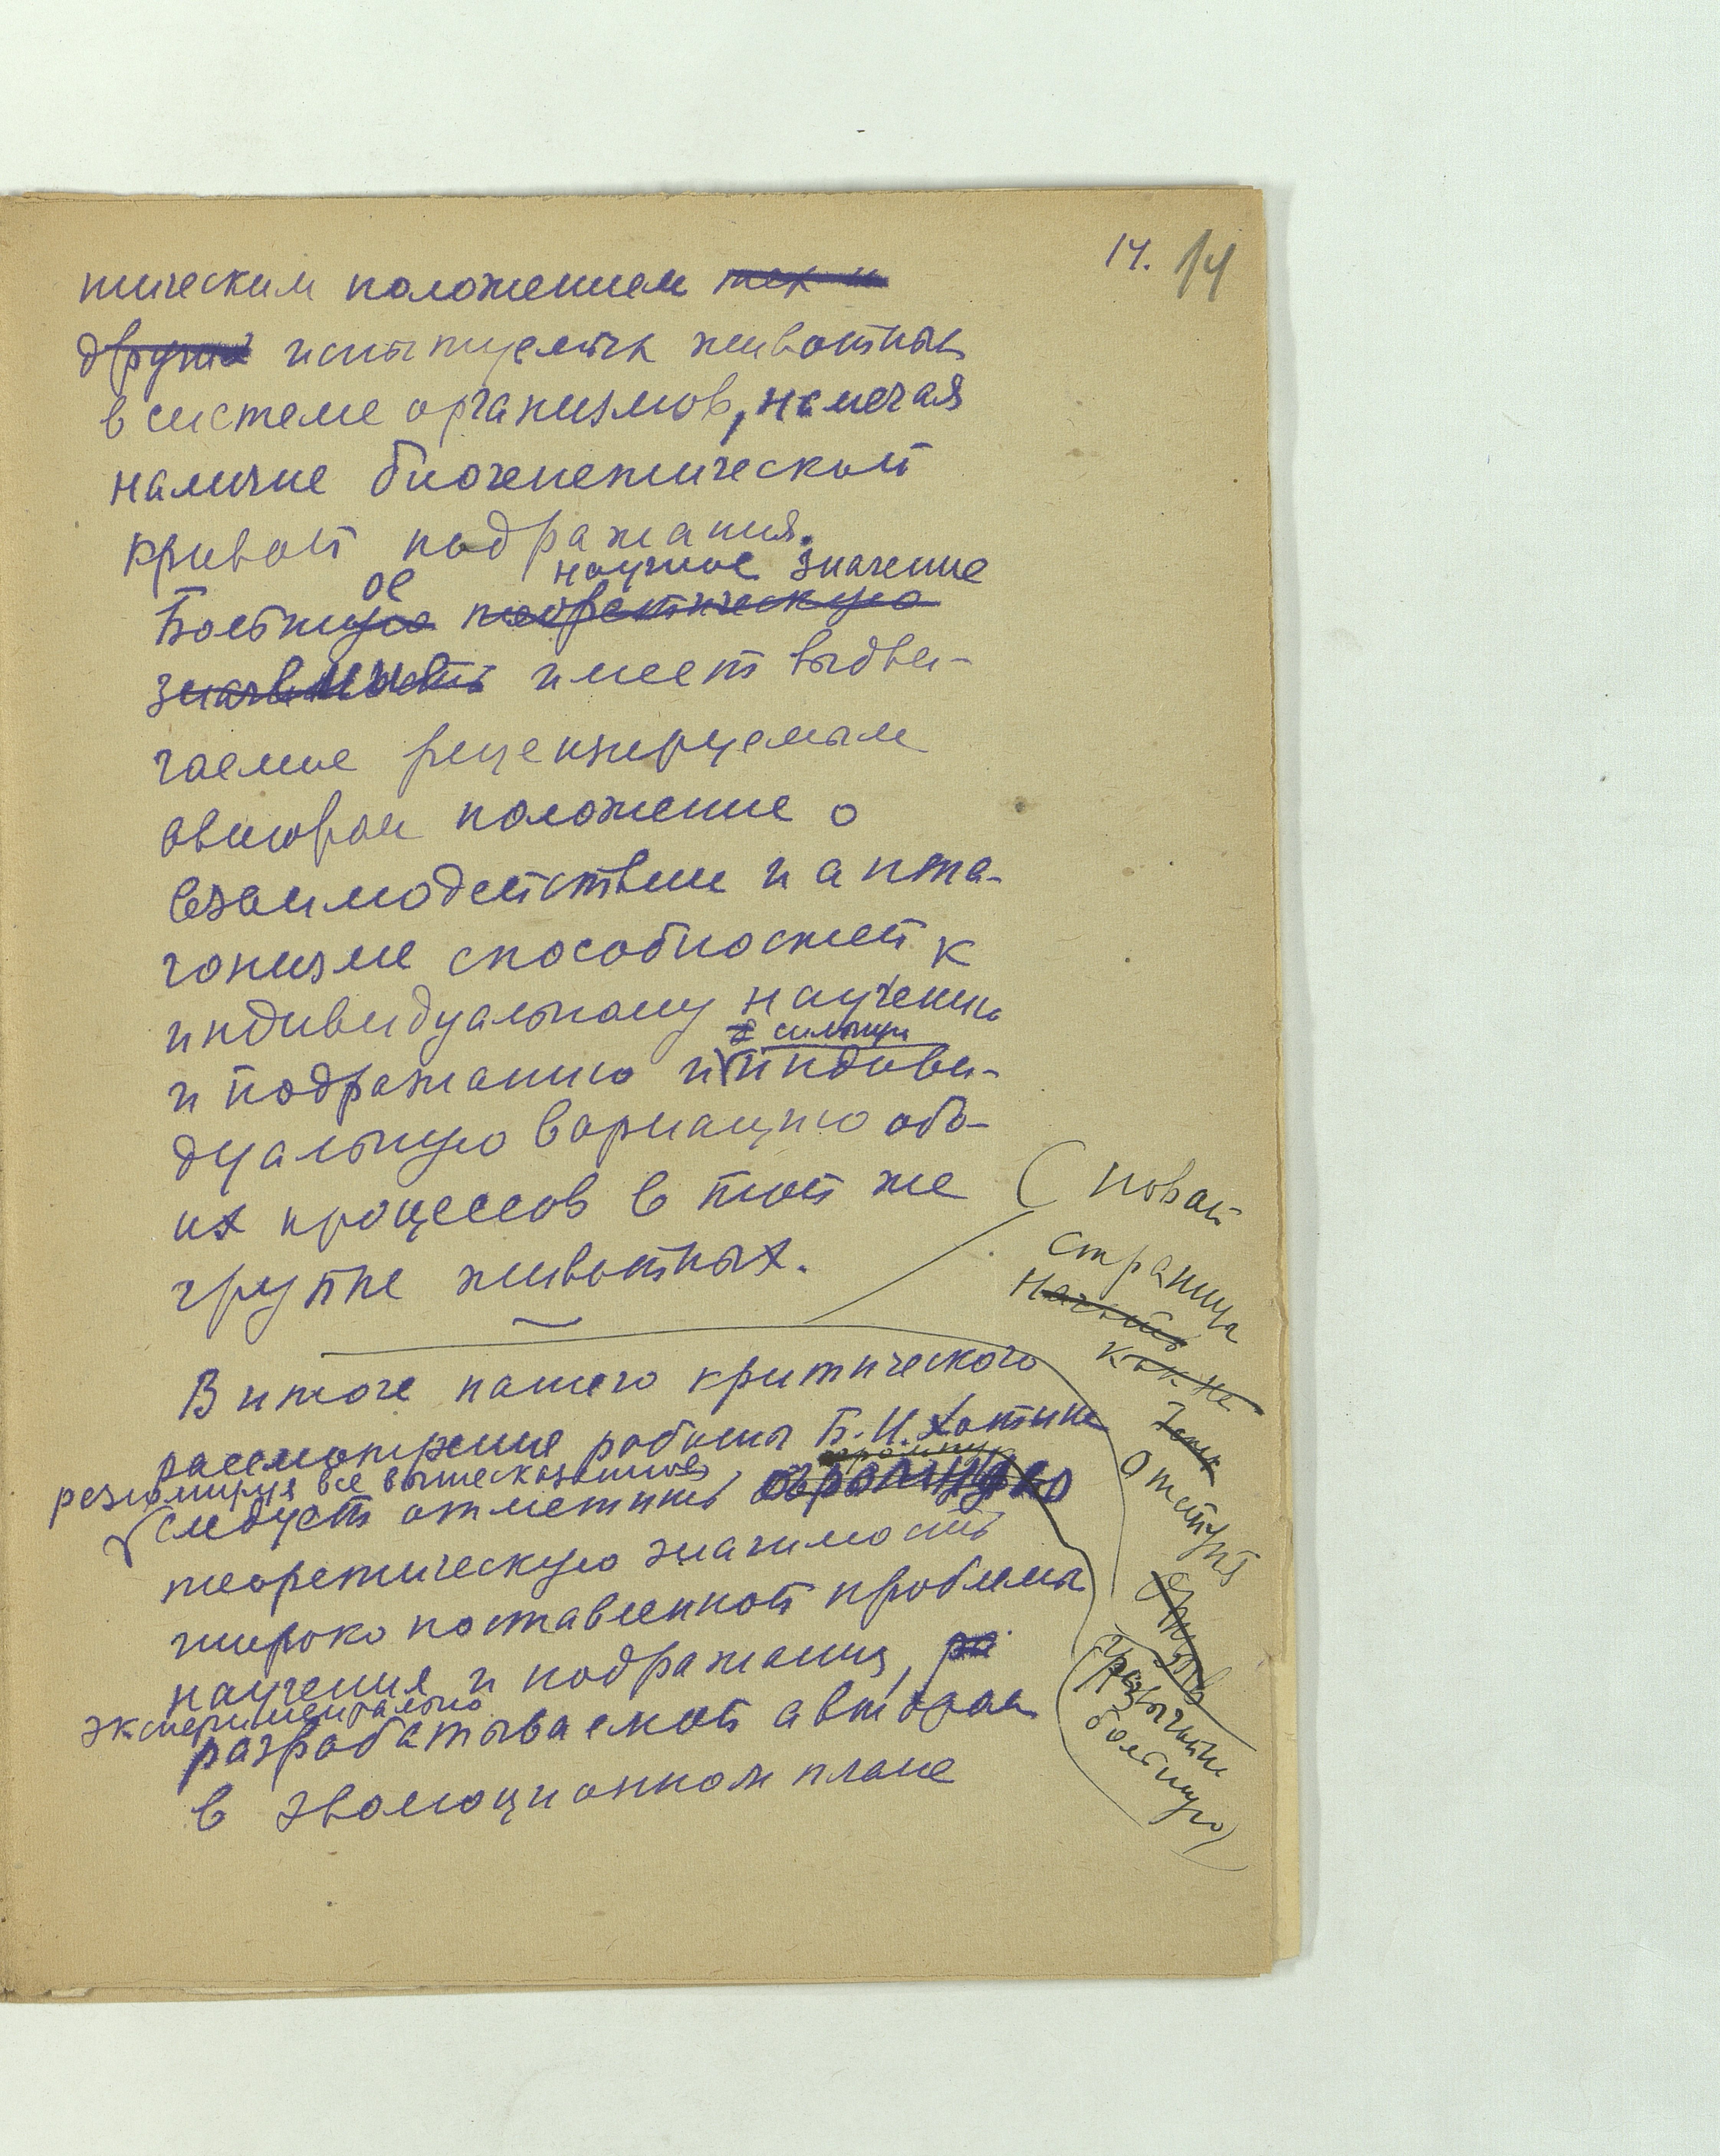 14. 14
тическим положением тех и
других испытуемых животных
в системе организмов, намечая
наличие биогенетической
кривой подражания.
ое научное значение
Большую теоретическую
значимость имеет выдви-
гаемое рецензируемым
автором положение о
взаимодействии и анта-
гонизме способностей к
индивидуальному научению
сильную
и подражанию и индиви-
дуальную вариацию обо-
их процессов в той же
группе животных.
(новая
страница
Начать
как не
Отступя
В итоге нашего критического
рассмотрения работы Б.И. Хотина
резюмируя все вышесказанное,
следует отметить огромную
теоретическую значимость
широко поставленной проблемы
научения и подражания, ра
экспериментально
разрабатываемой автором
в эволюционном плане
(чрезвычайно
большую)